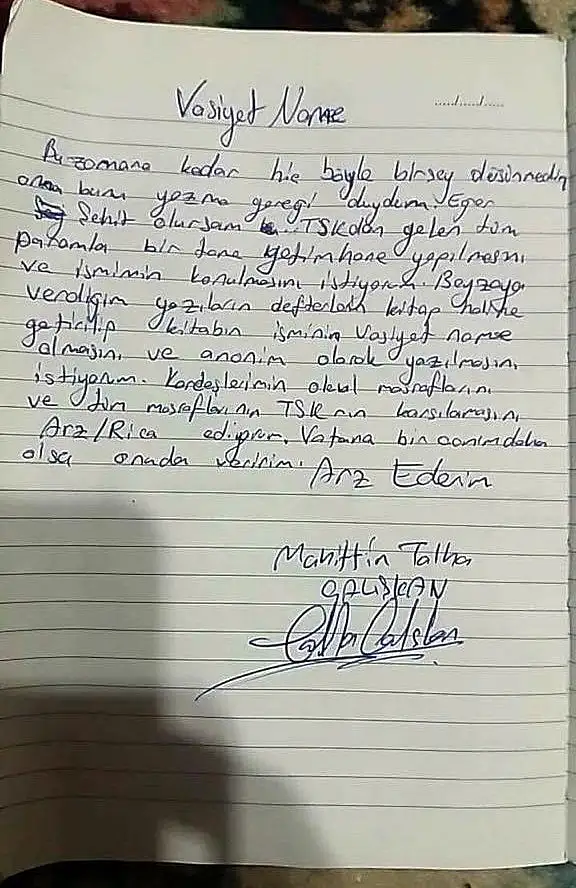 Vasiyet Name
...../...../.....
Bu zamana kadar hic böyle birsey düsünmedim
ama bunu yazma geregi duydum. Eger
Sehit olursam TSKdan gelen tüm
paramla bir tane yetimhane yapılmasını
ve ismimin konulmasını istiyorum. Beyzaya
verdigim yazıların defterlerin kitap haline
getirilip kitabın isminin Vasiyet name
olmasını ve anonim olarak yazılmasını
istiyorum. Kardeslerimin okul masraflarını
ve tüm masraflarının TSK nın karsılamasını
Arz/Rica ediyorum. Vatana bin canım daha
olsa onuda veririm. Arz Ederim
Muhittin Talha
ÇALIŞKAN